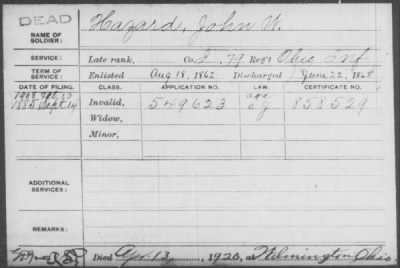 DEAD
NAME OF SOLDIER: Hazard, John W.
SERVICE: Late rank, Co. I, 79 Reg't Ohio Inf
TERM OF SERVICE: Enlisted Aug 18, 1862 Discharged June 22, 1865
DATE OF FILING. CLASS. APPLICATION NO. LAW. CERTIFICATE NO.
1885 Sept 14 Invalid, 549623 853529
Widow,
Minor,
ADDITIONAL SERVICES:
REMARKS:
Died Apr. 13, 1920, at Wilmington Ohio